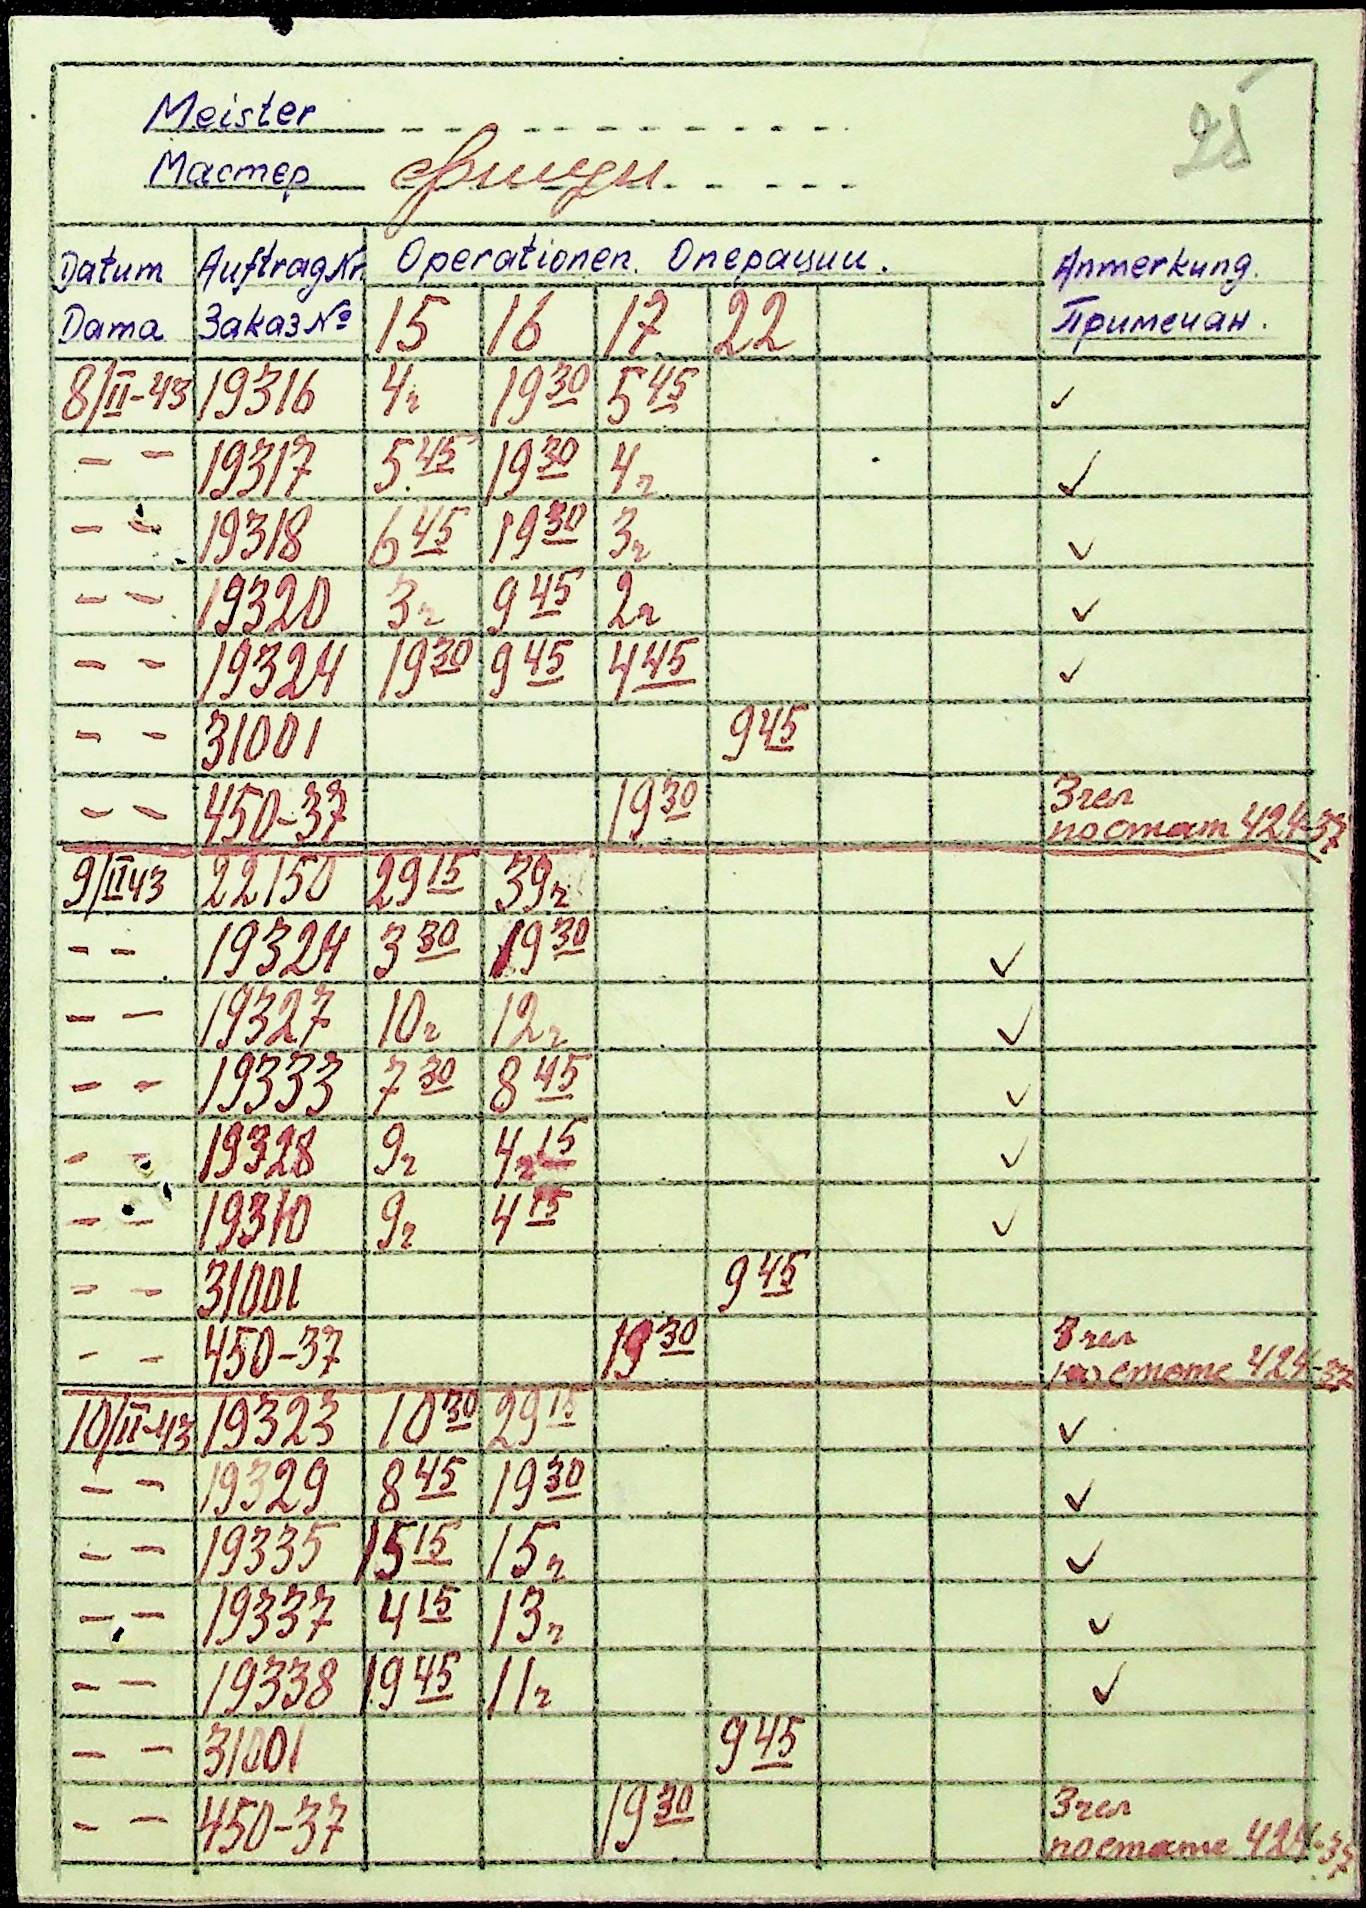 25
Meister
Мастер
Datum Auftrag Nr. Operationen. Операции. Anmerkung.
Дата Заказ № 15 16 17 22 Примечан.
8/II-43 19316 4г 19 30 5 45 ✓
– – 19317 5 45 19 30 4г ✓
– – 19318 6 45 19 30 3г ✓
– – 19320 3г 9 45 2г ✓
– – 19324 19 30 9 45 4 45 ✓
– – 31001 9 45
– – 450-37 19 30 3 чел
по стат 424-37
9/II 43 22150 29 15 39г
– – 19324 3 30 19 30 ✓
– – 19327 10г 12г ✓
– – 19333 7 30 8 45 ✓
– – 19328 9г 4г 15 ✓
– – 19310 9г 4 15 ✓
– – 31001 9 45
– – 450-37 19 30 3 чел
по стате 424-37
10/II-43 19323 10 30 29 15 ✓
– – 19329 8 45 19 30 ✓
– – 19335 15 15 15г ✓
– – 19337 4 15 13г ✓
– – 19338 19 45 11г ✓
– – 31001 9 45
– – 450-37 19 30 3 чел
по стате 424-37